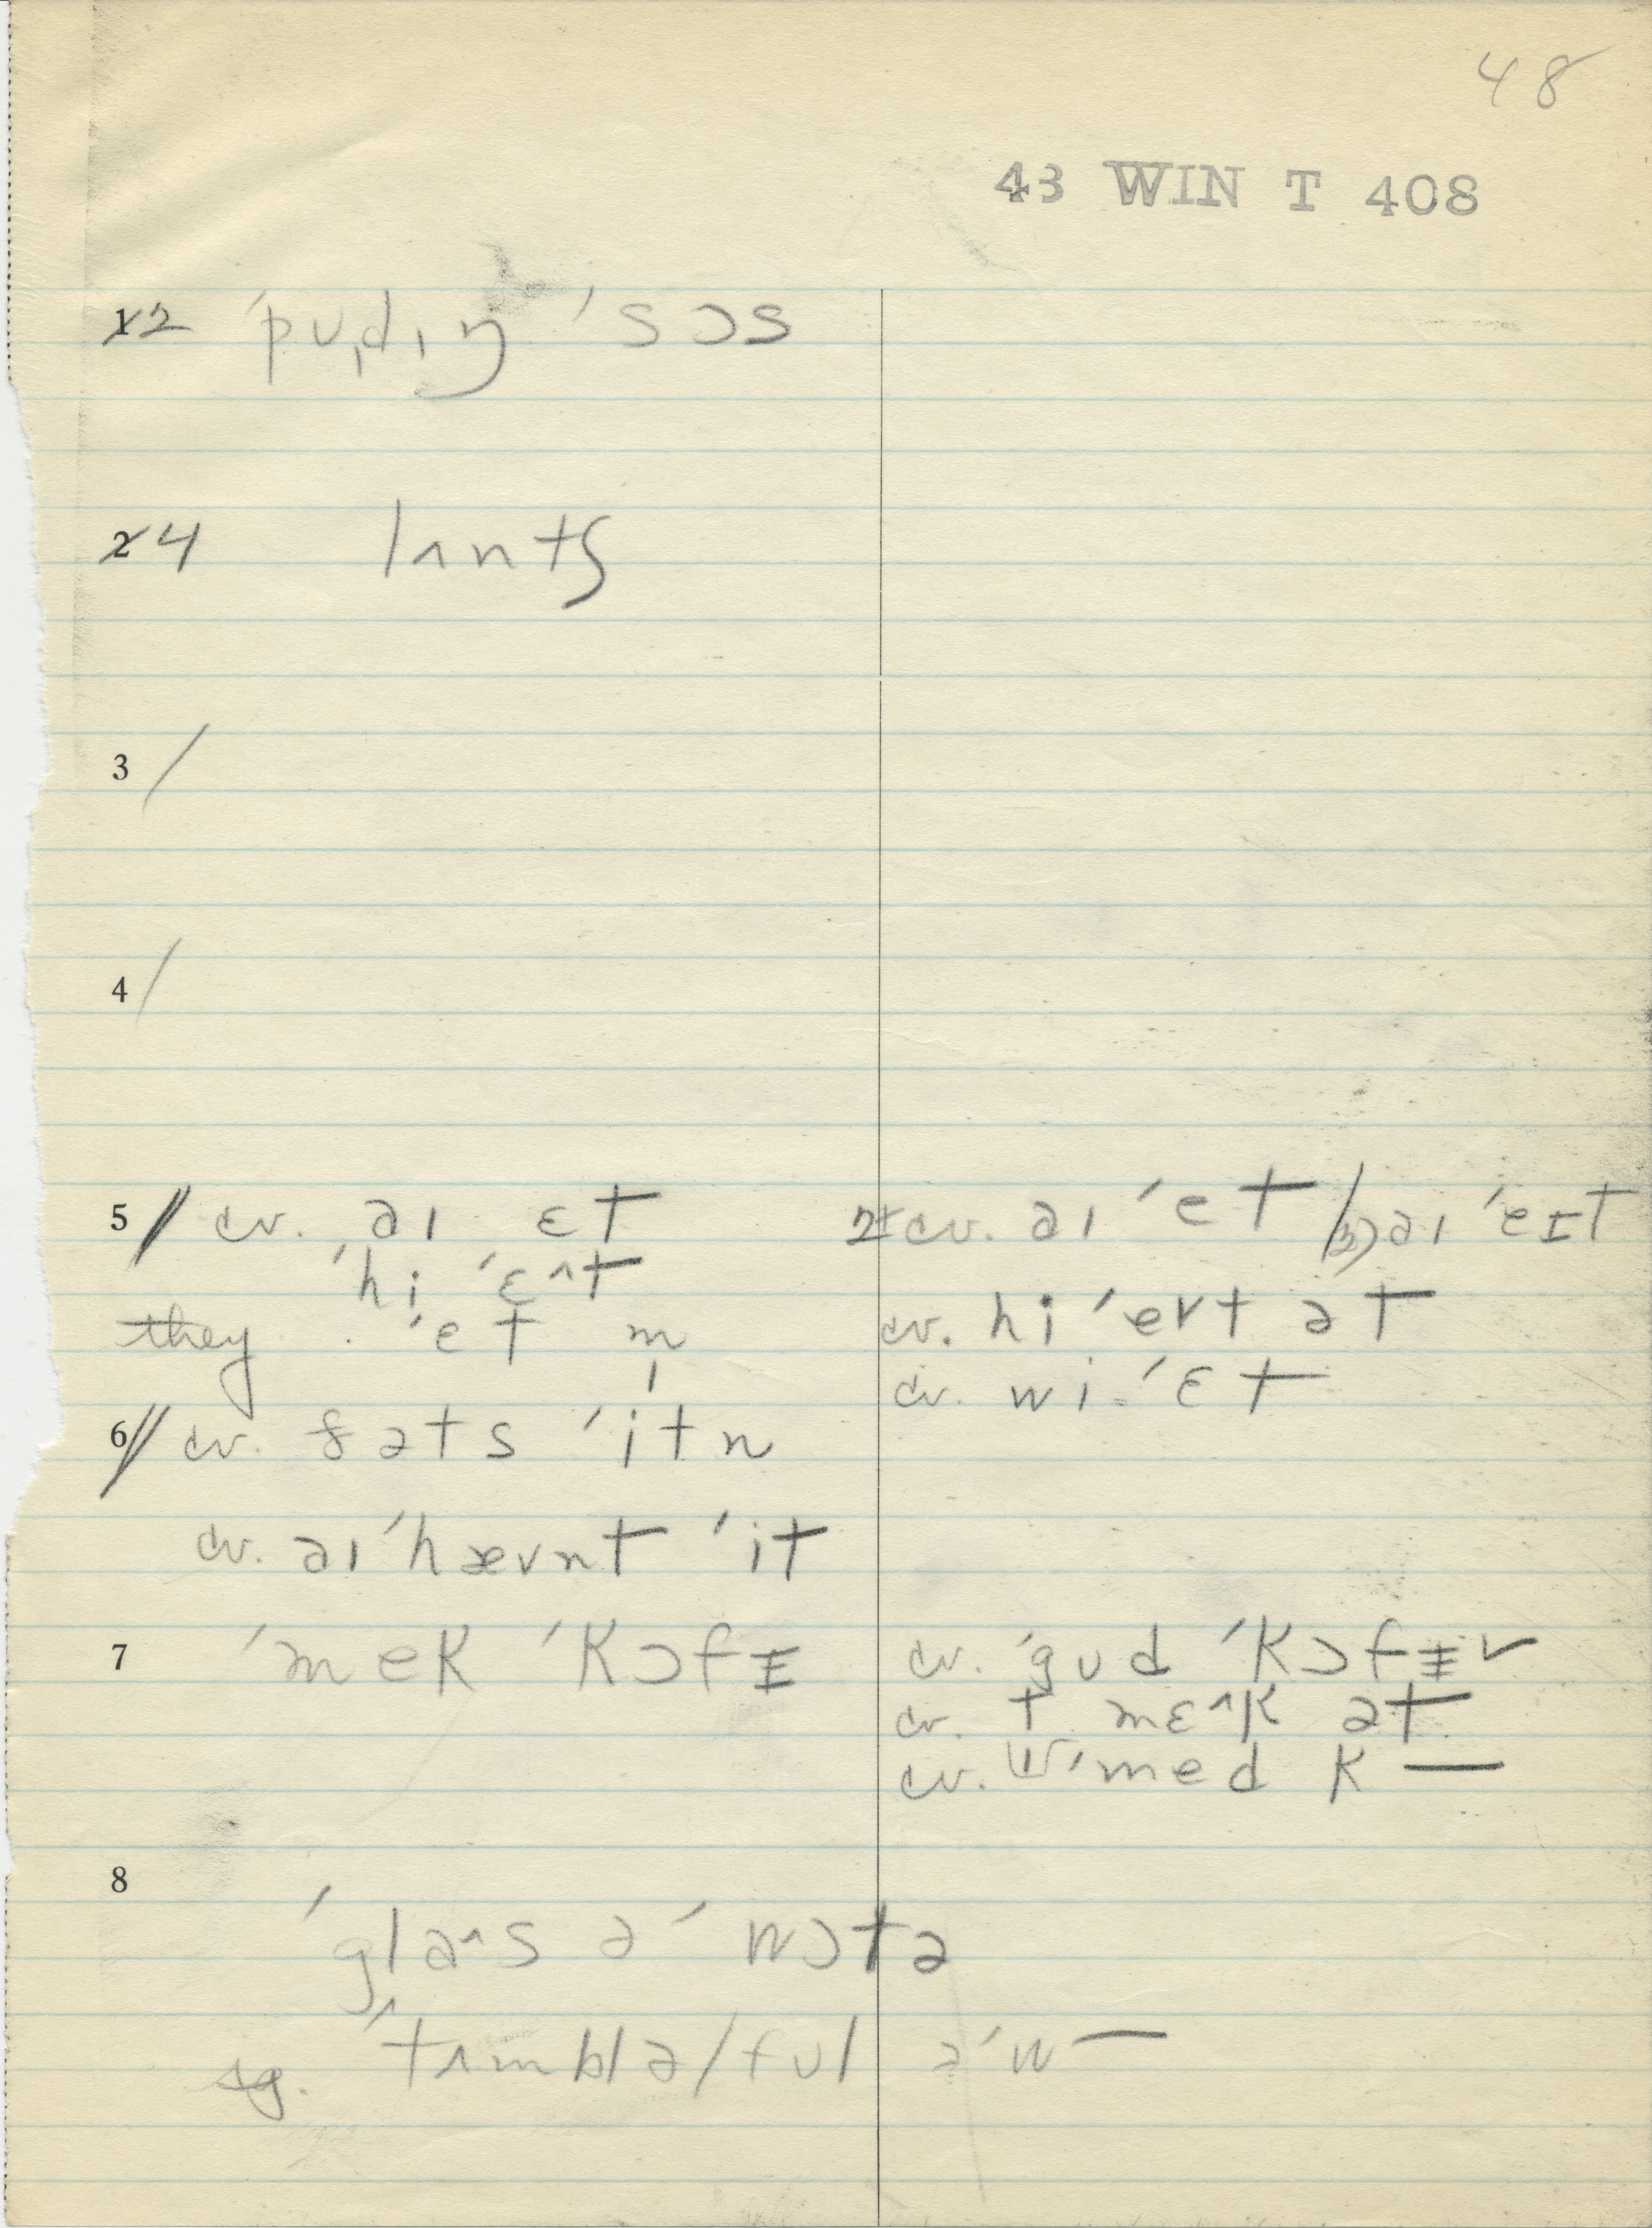 48
43 WIN T 408
12 ˈpʊdɪŋ ˈsɔs
24 lʌntʃ
3 /
4 /
5 // cv. aɪ ɛt
ˈhi ˈɛ^t
they ˈet m̩
2+ cv. aɪ ˈet / (3) aɪ ˈeɪt
cv. hi ˈevt ət
cv. wi ˈɛt
6 // cv. ðəts ˈitn
cv. aɪ ˈhævnt ˈit
7 ˈmek ˈkɔfɪ
cv. ˈgʊd ˈkɔfɪv
cv. t mɛ^k ət
cv. ˈmed k —
8
ˈgla^s ə ˈwɔtə
sg. ˈtʌmblə/fʊl ə ˈw —